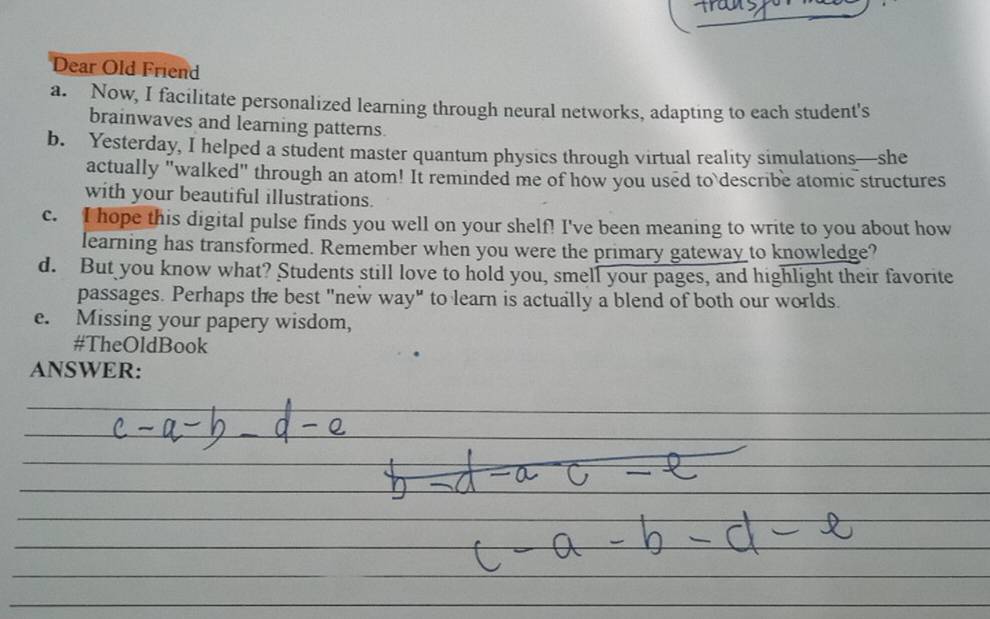 transformed
Dear Old Friend
a. Now, I facilitate personalized learning through neural networks, adapting to each student's
brainwaves and learning patterns.
b. Yesterday, I helped a student master quantum physics through virtual reality simulations—she
actually "walked" through an atom! It reminded me of how you used to describe atomic structures
with your beautiful illustrations.
c. I hope this digital pulse finds you well on your shelf! I've been meaning to write to you about how
learning has transformed. Remember when you were the primary gateway to knowledge?
d. But you know what? Students still love to hold you, smell your pages, and highlight their favorite
passages. Perhaps the best "new way" to learn is actually a blend of both our worlds.
e. Missing your papery wisdom,
#TheOldBook
ANSWER:
c-a-b-d-e
b-d-a c -e
c-a-b-d-e